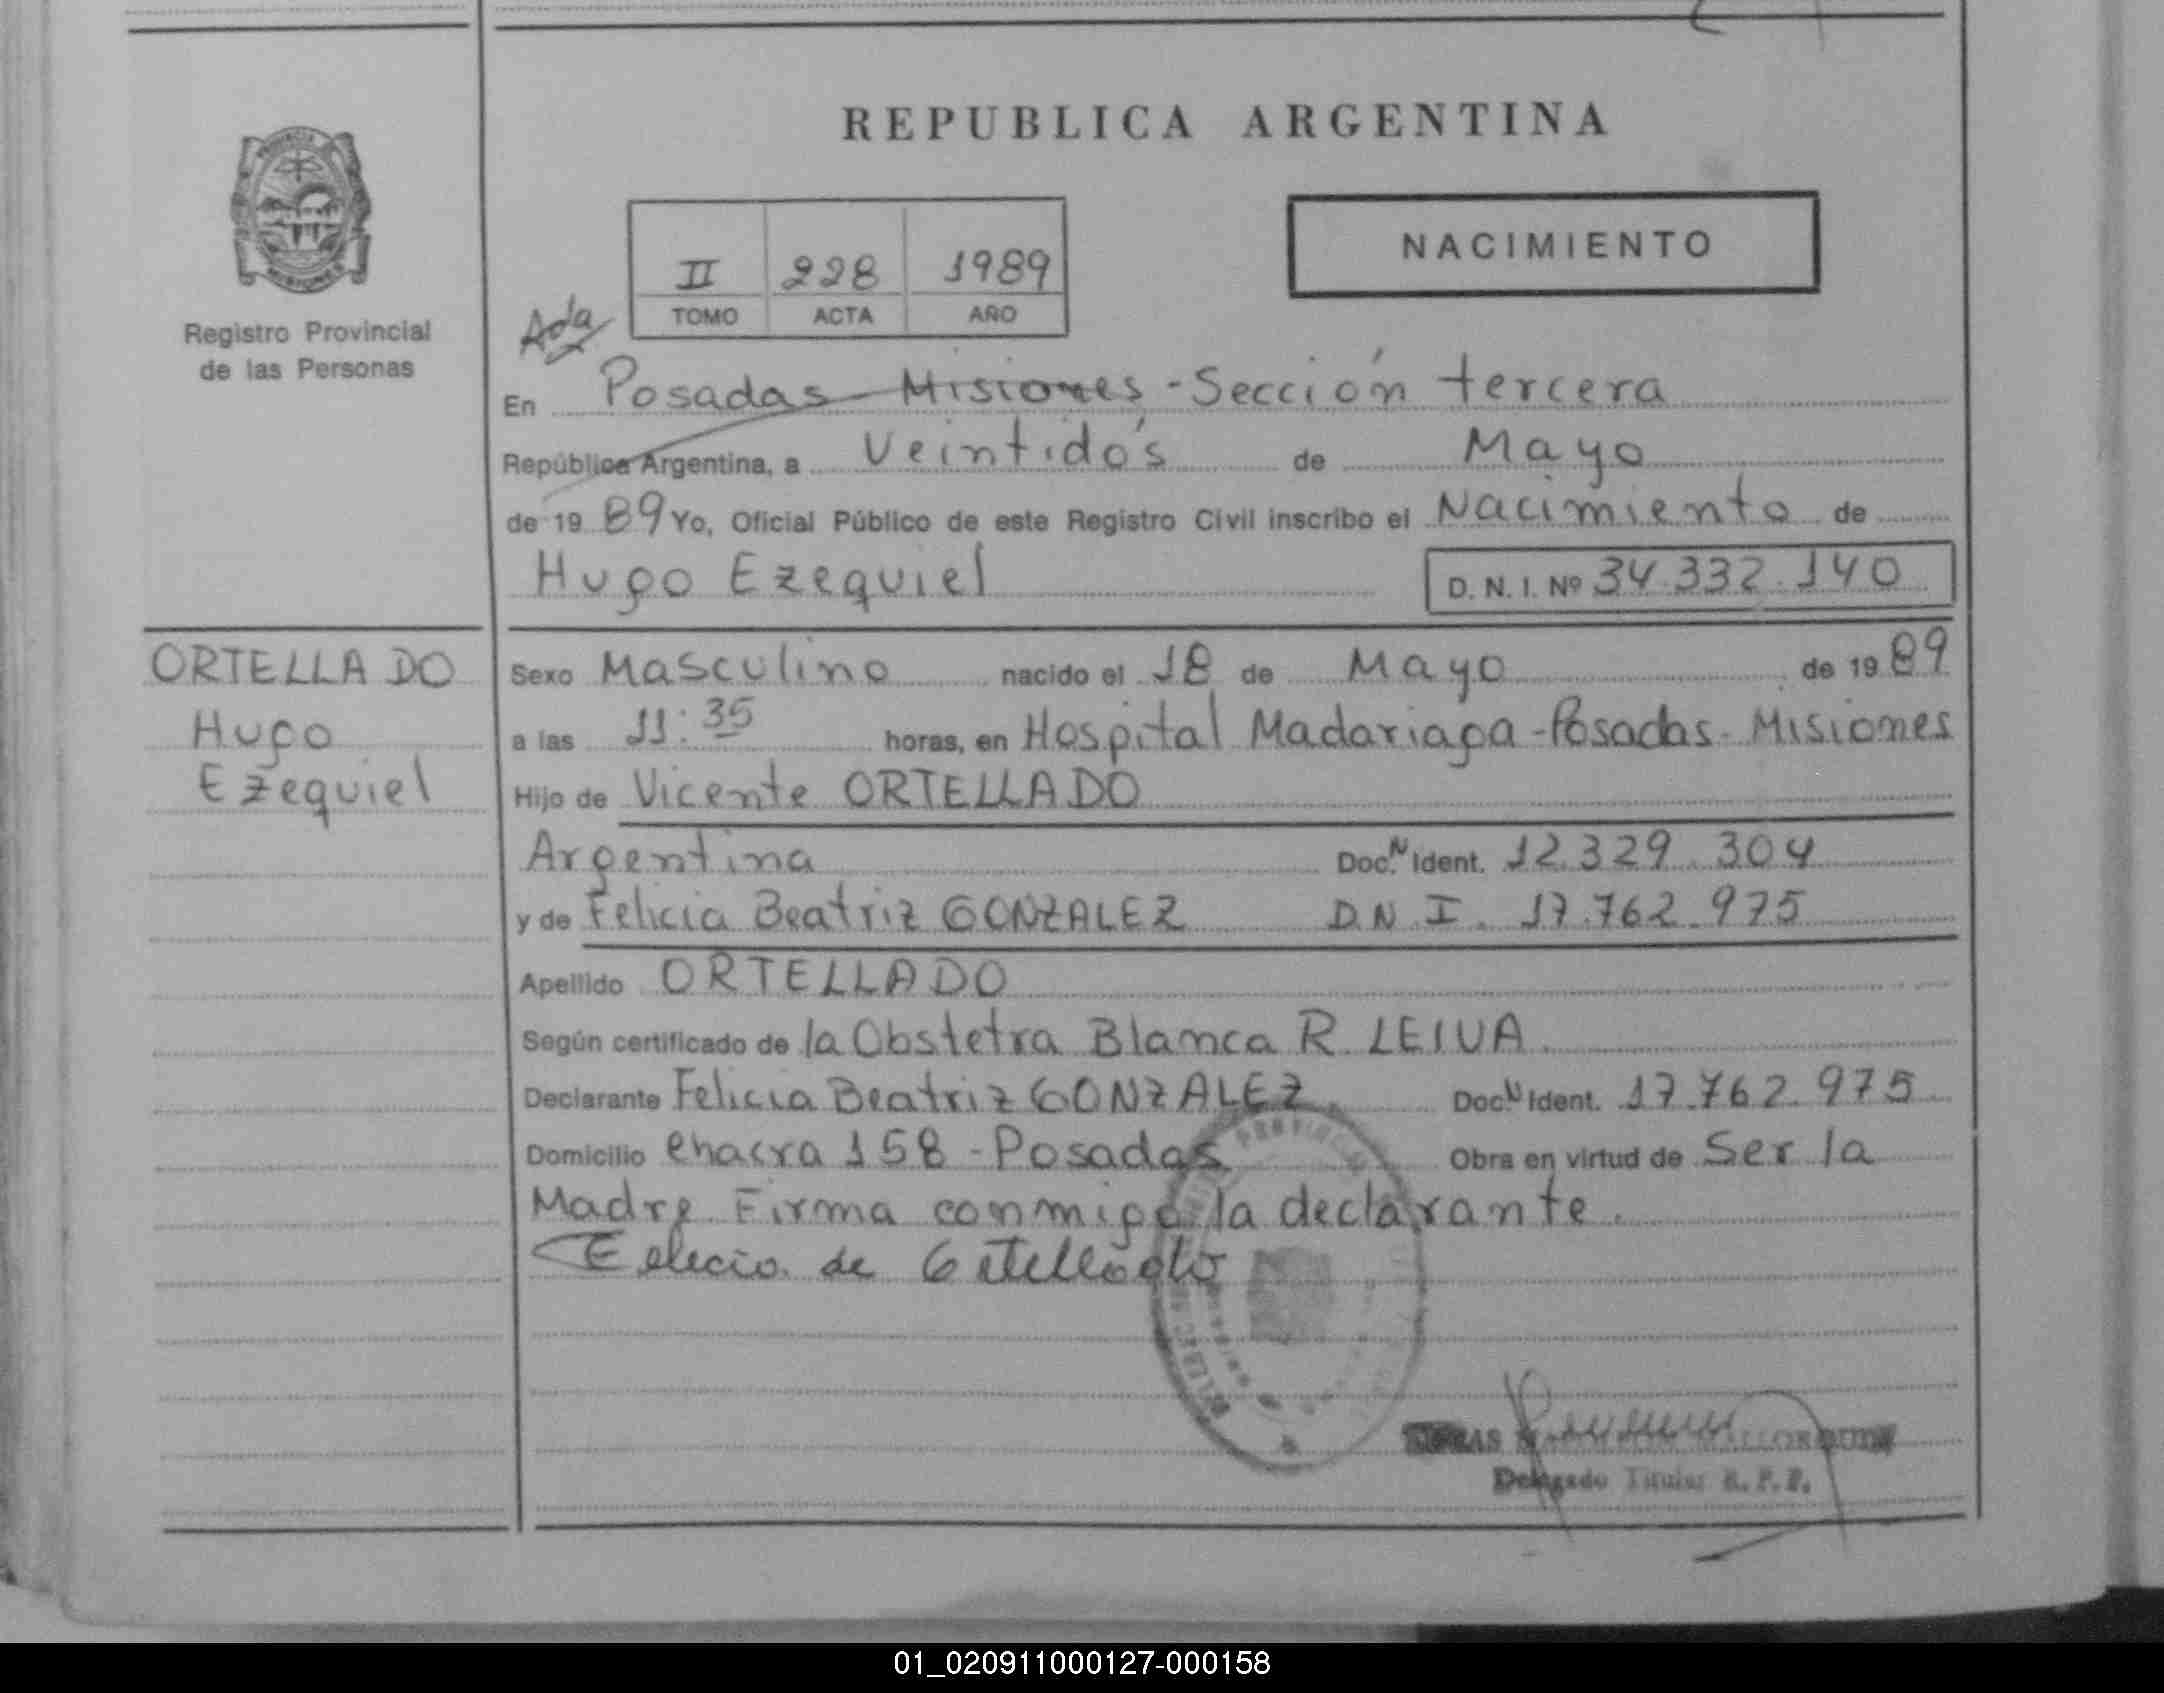 REPUBLICA ARGENTINA
NACIMIENTO
II 228 1989
TOMO ACTA AÑO
Registro Provincial
de las Personas
En Posadas - Misiones - Sección tercera
República Argentina, a Veintidós de Mayo
de 19 89 Yo, Oficial Público de este Registro Civil inscribo el Nacimiento de
Hugo Ezequiel D. N. I. Nº 34.332.140
ORTELLADO
Hugo
Ezequiel
Sexo Masculino nacido el 18 de Mayo de 19 89
a las 11:35 horas, en Hospital Madariaga - Posadas - Misiones
Hijo de Vicente ORTELLADO
Argentina Doc. N Ident. 12.329.304
y de Felicia Beatriz GONZALEZ D.N.I. 17.762.975
Apellido ORTELLADO
Según certificado de la Obstetra Blanca R LEIVA
Declarante Felicia Beatriz GONZALEZ Doc. N Ident. 17.762.975
Domicilio chacra 158 - Posadas Obra en virtud de Ser la
Madre Firma conmigo la declarante.
de
PROVINCIA
Delegado Titular R. P. P.
01_020911000127-000158